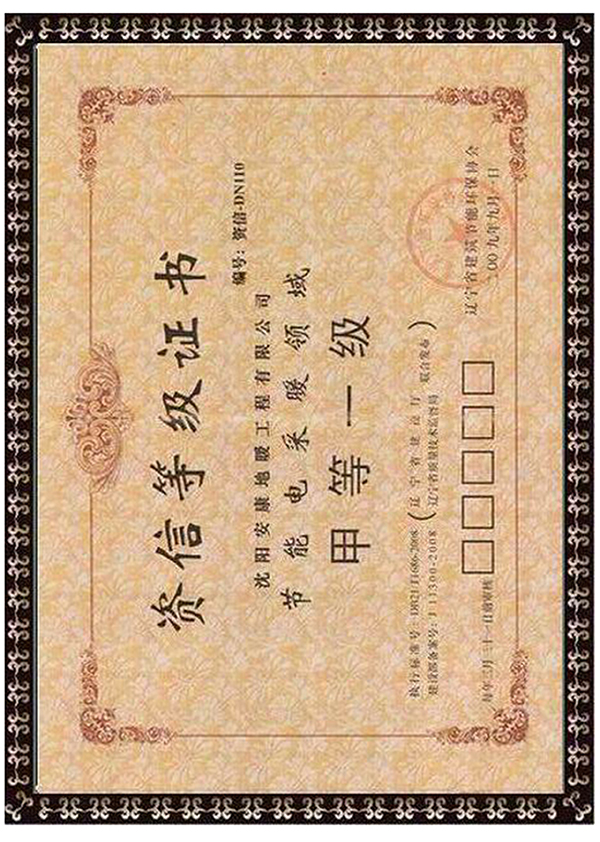 资信等级证书
编号：资信-DN110
沈阳安康地暖工程有限公司
节能电采暖领域
甲等一级
执行标准号：DB21/T1686-2008（辽宁省建设厅 辽宁省质量技术监督局 联合发布）
建设部备案号：J11300-2008
每年三月三十一日前审核 □□□□□
辽宁省建筑节能环保协会
二00九年九月一日